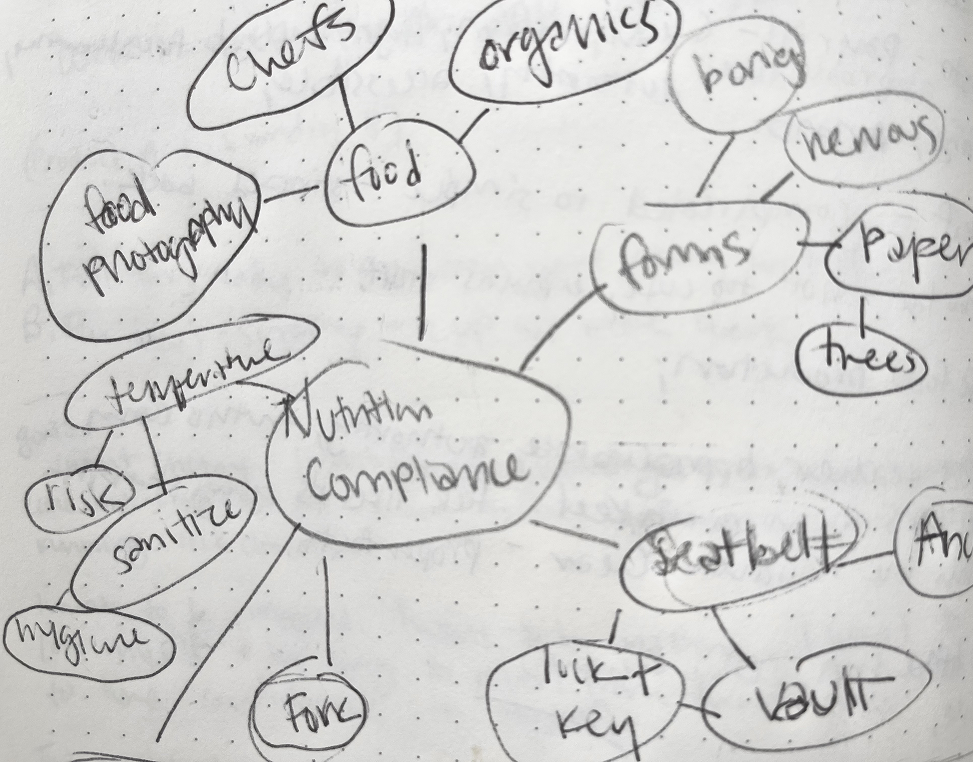 chefs
organics
boring
nervous
food
food
photography
forms
paper
trees
temperature
Nutrition
Compliance
risk
sanitize
hygiene
seatbelt
lock +
key
vault
Fork